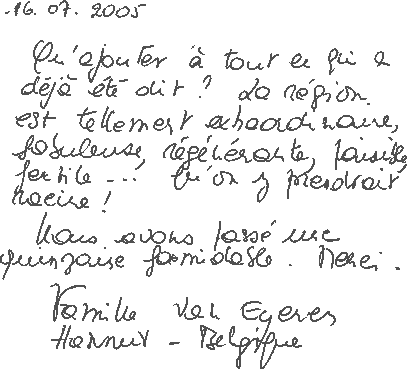 16.07.2005
Qu'ajouter à tout ce qui a
déjà été dit ? La région
est tellement extraordinaire,
fabuleuse, régénérante, paisible,
fertile ...! Qu'on y prendrait
racine !
Nous avons passé une
quinzaine formidable. Merci.
Famille Van Egeren
Hannut - Belgique